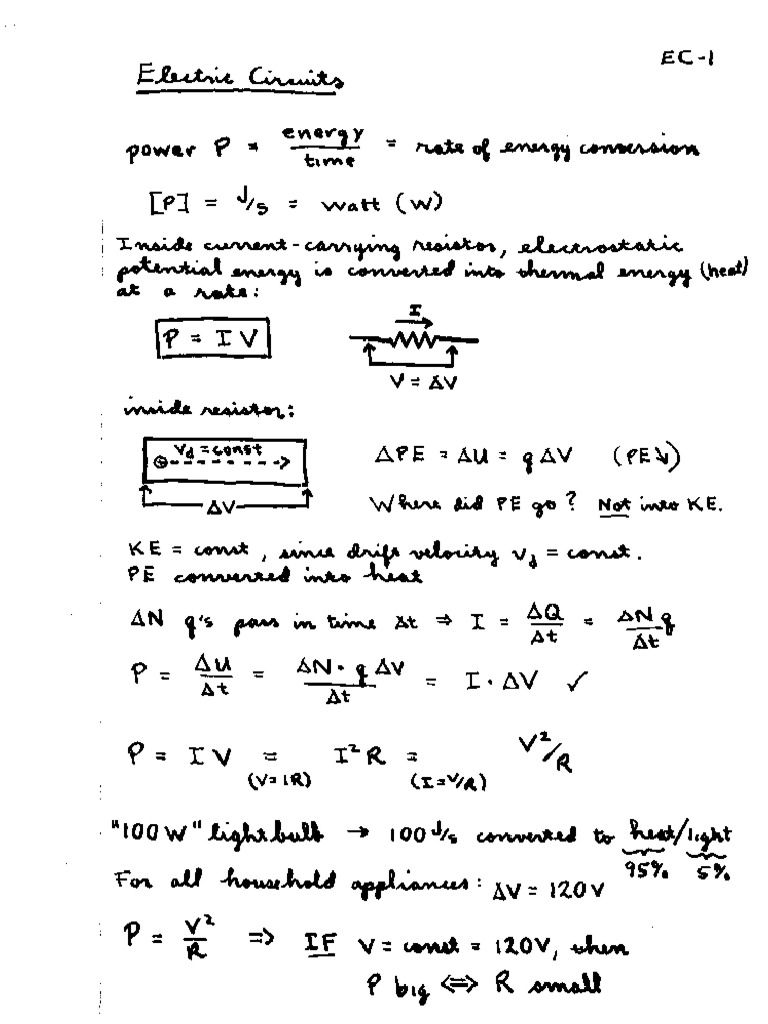 EC-1
Electric Circuits
power P = energy/time = rate of energy conversion
[P] = J/s = watt (W)
Inside current-carrying resistor, electrostatic
potential energy is converted into thermal energy (heat)
at a rate:
P = I V
I
V = ΔV
inside resistor:
v_d = const
ΔV
ΔPE = ΔU = q ΔV (PE↓)
Where did PE go? Not into KE.
KE = const, since drift velocity v_d = const.
PE converted into heat
ΔN q's pass in time Δt ⇒ I = ΔQ/Δt = ΔN q/Δt
P = ΔU/Δt = ΔN · q ΔV/Δt = I · ΔV ✓
P = I V = I² R = V²/R
(V=IR) (I=V/R)
"100 W" light bulb → 100 J/s converted to heat/light
95% 5%
For all household appliances: ΔV = 120 V
P = V²/R ⇒ IF V = const = 120V, then
P big ⇔ R small